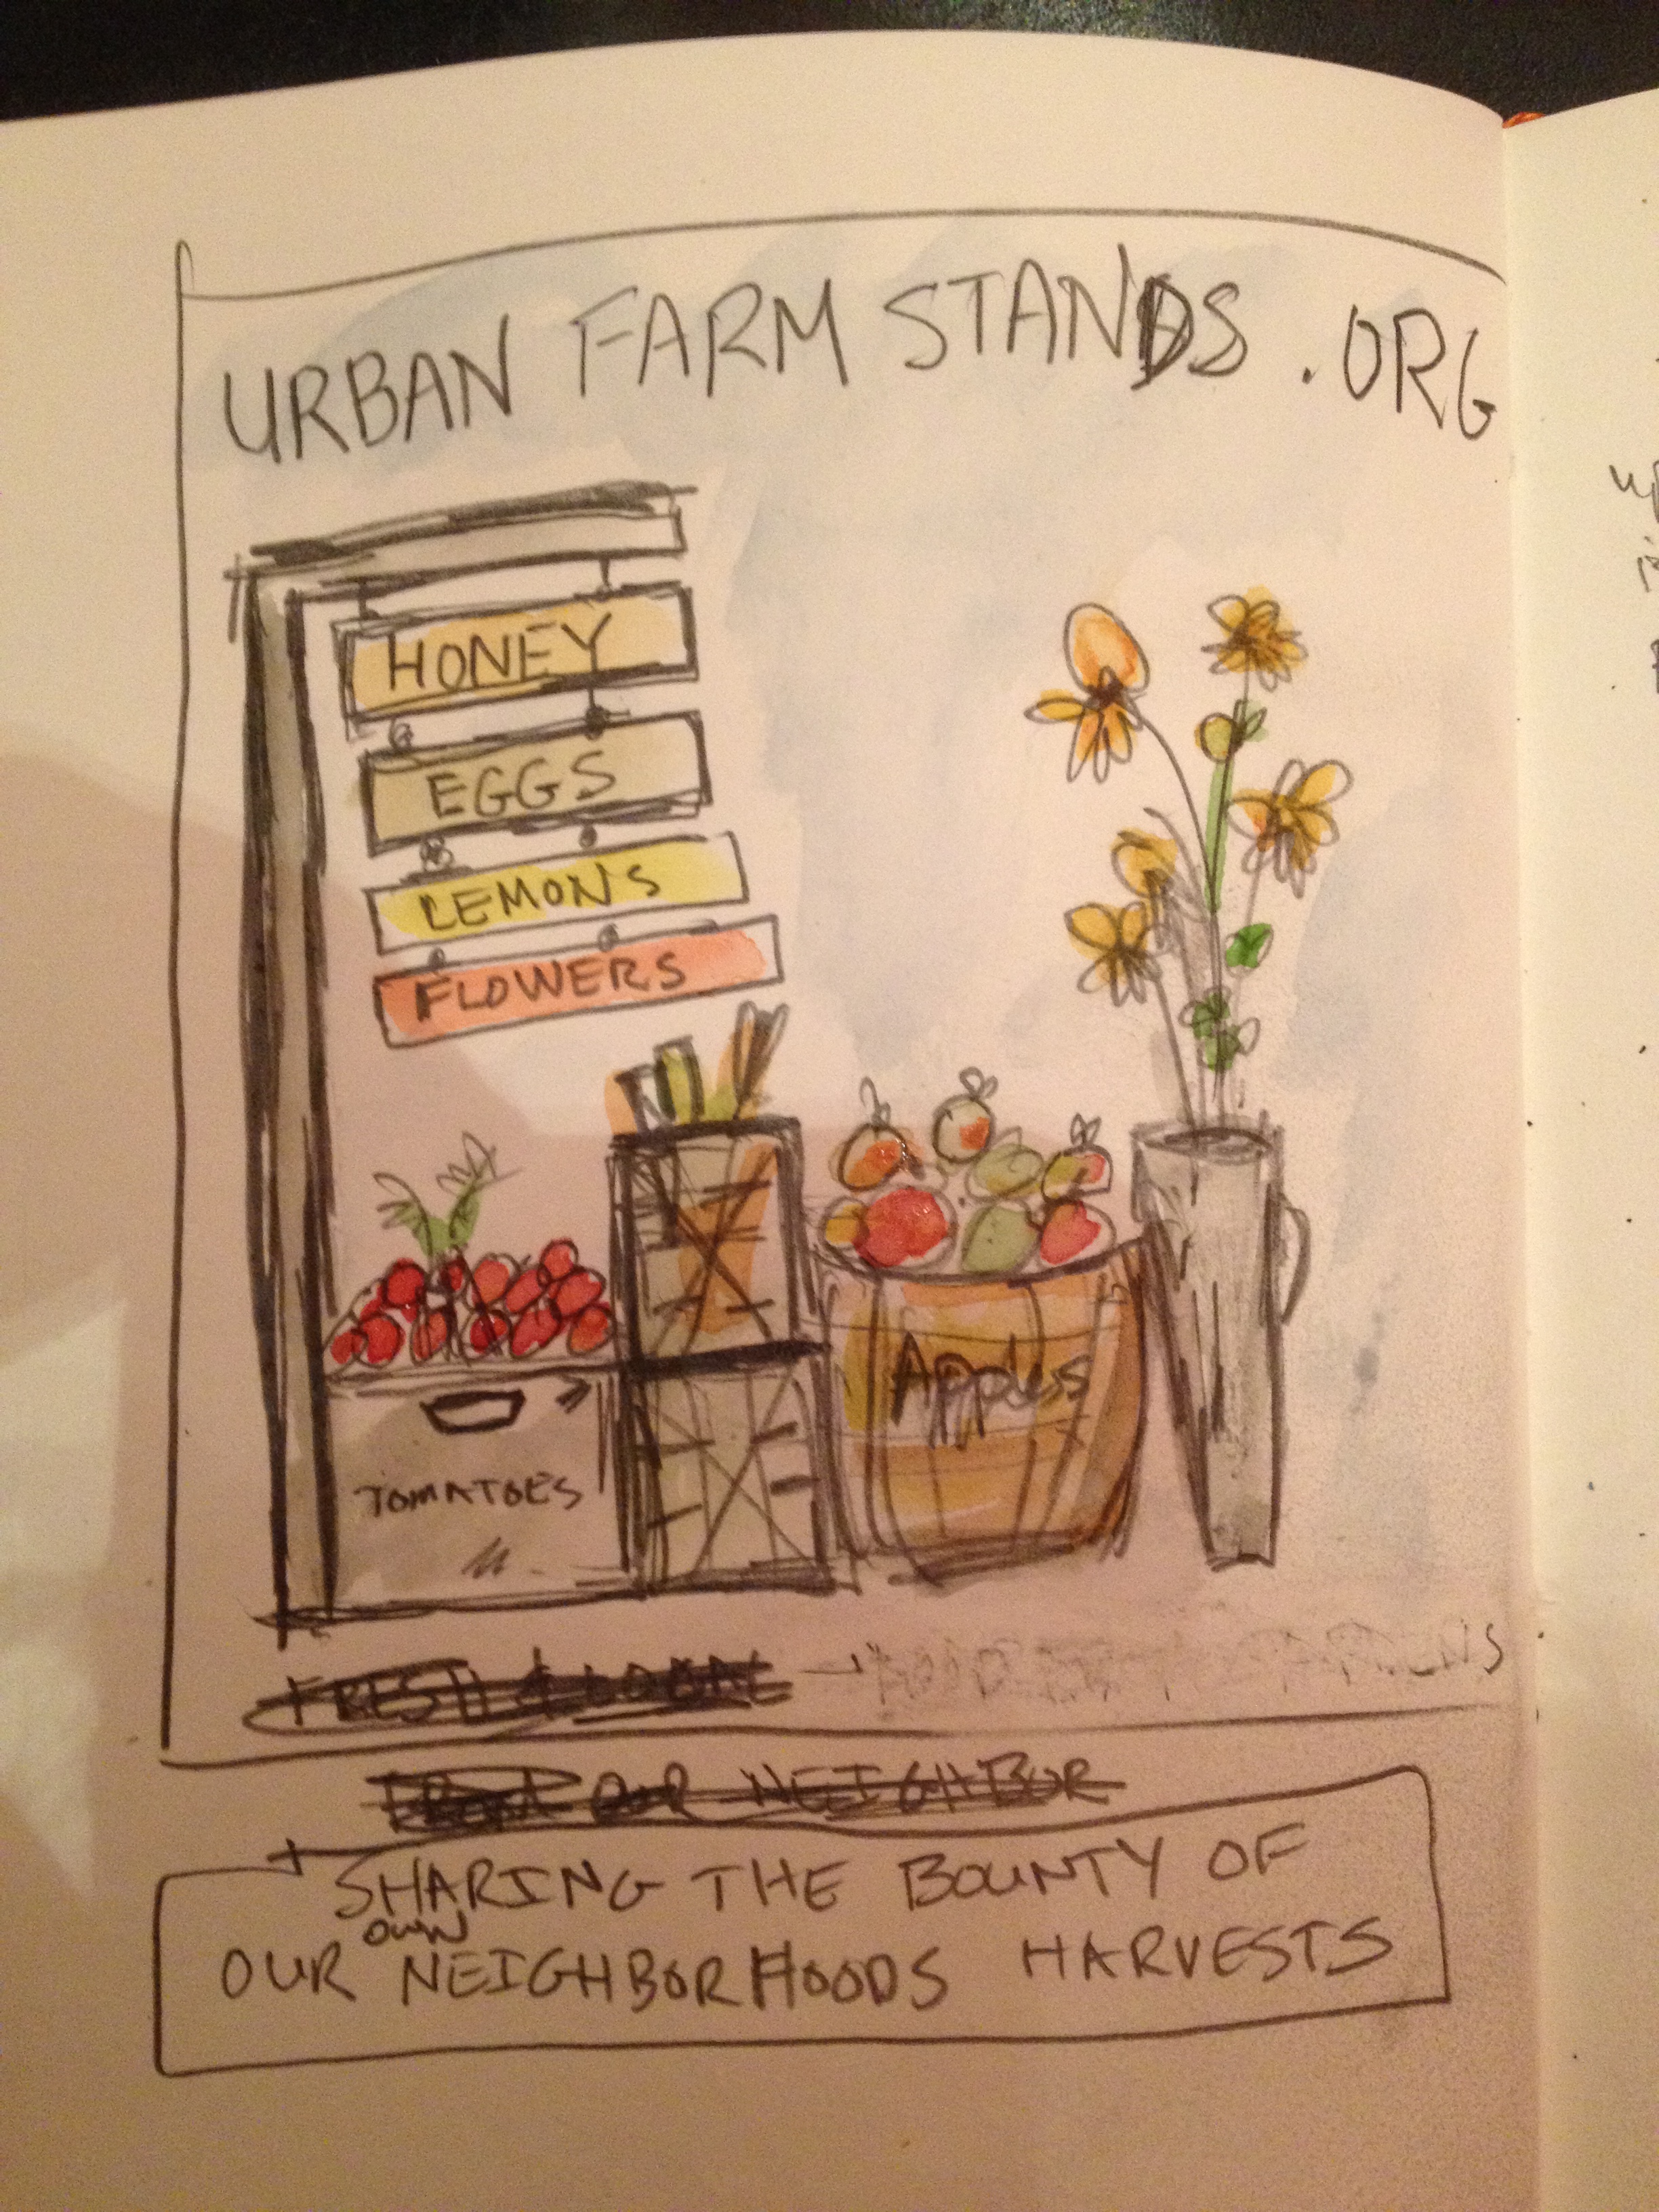 URBAN FARM STANDS .ORG
HONEY
EGGS
LEMONS
FLOWERS
TOMATOES
Apples
FRESH & LOCAL
FROM OUR NEIGHBOR
SHARING THE BOUNTY OF
OUR own NEIGHBORHOODS HARVESTS